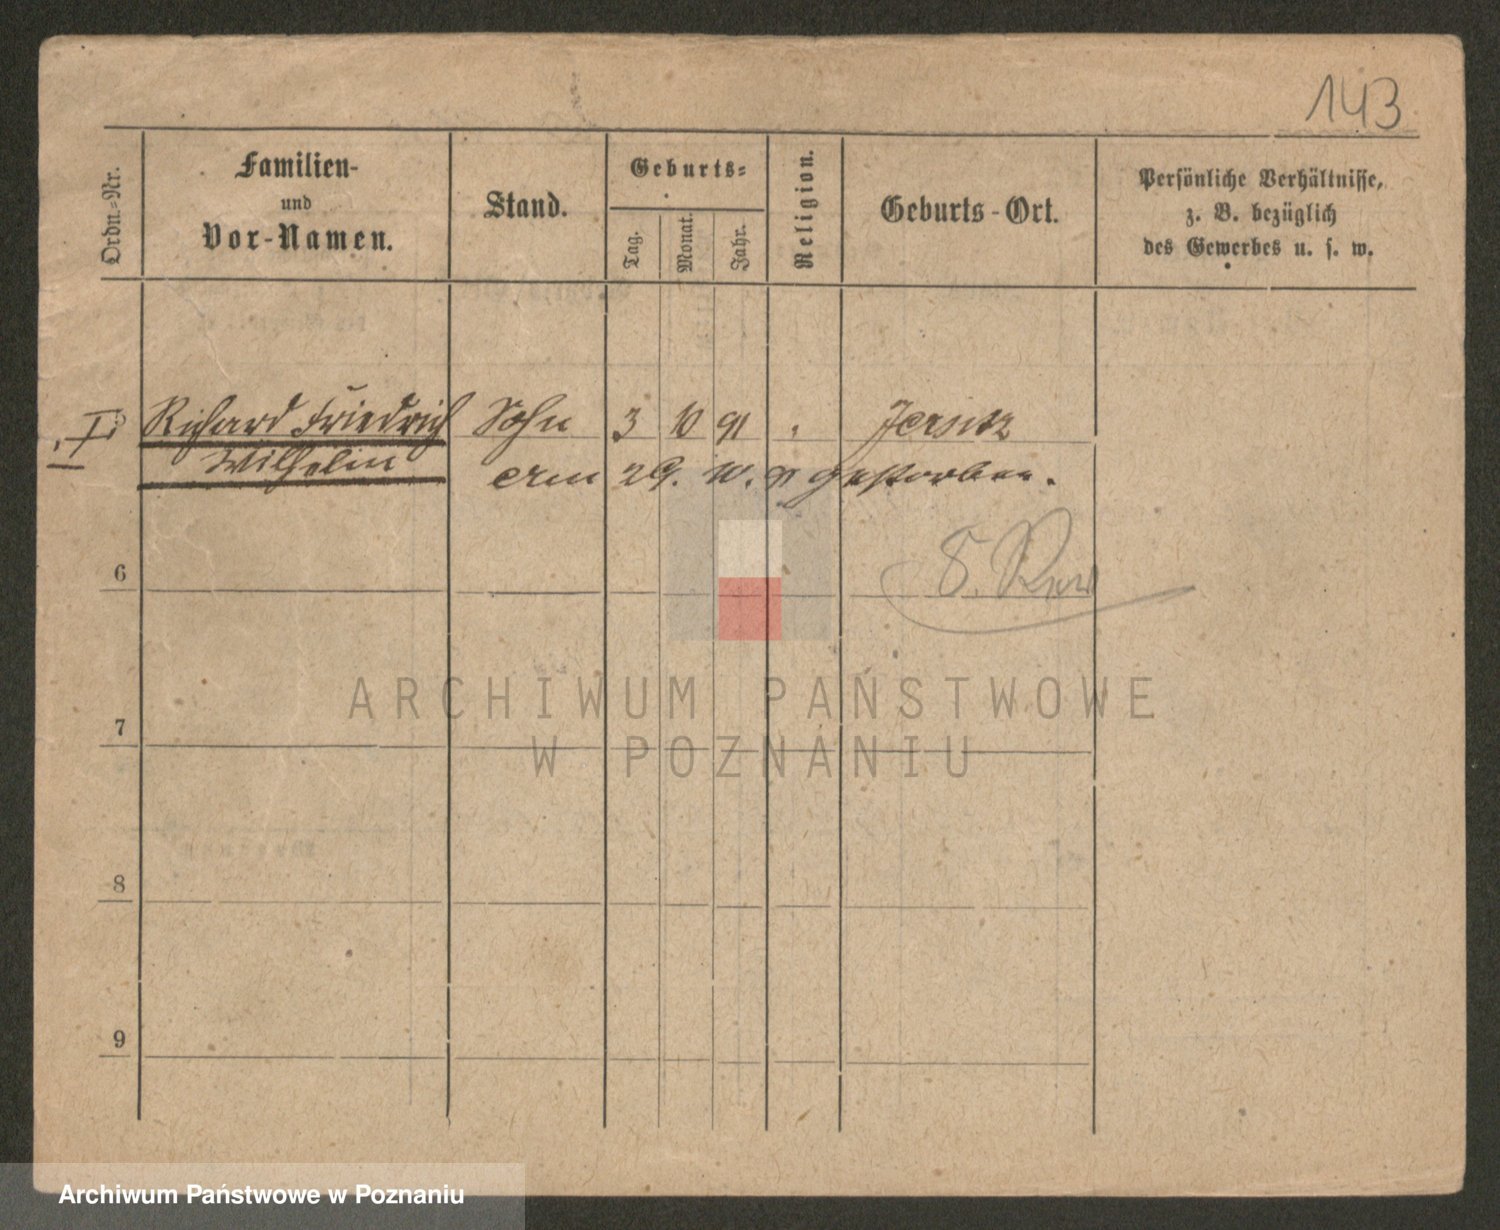 143
Ordn.-Nr.
Familien-
und
Vor-Namen.
Stand.
Geburts-
Tag.
Monat.
Jahr.
Religion.
Geburts-Ort.
Persönliche Verhältnisse,
z. B. bezüglich
des Gewerbes u. s. w.
Richard Friedrich Sohn 3 10 91 Jersitz
Wilhelm am 29. 10. 91 gestorben.
6
7
8
9
ARCHIWUM PAŃSTWOWE
W POZNANIU
Archiwum Państwowe w Poznaniu